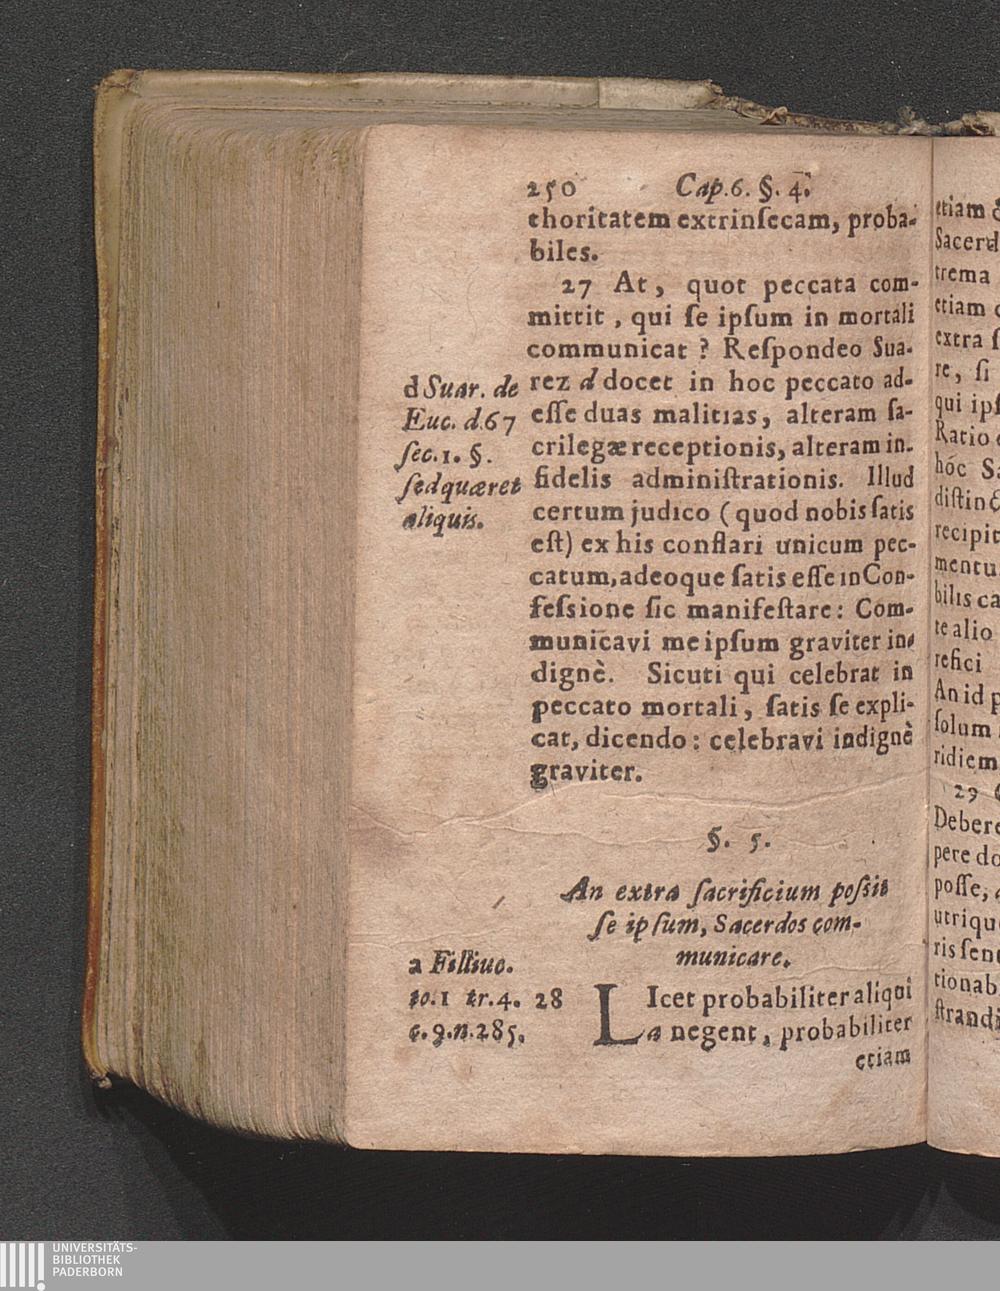 250 Cap.6. §. 4.
thoritatem extrinſecam, proba-
biles.
27 At, quot peccata com-
mittit, qui ſe ipſum in mortali
communicat? Reſpondeo Sua-
rez d docet in hoc peccato ad-
eſſe duas malitias, alteram ſa-
crilegæ receptionis, alteram in-
fidelis adminiſtrationis. Illud
certum judico (quod nobis ſatis
eſt) ex his conflari unicum pec-
catum, adeoque ſatis eſſe in Con-
feſsione ſic manifeſtare: Com-
municavi me ipſum graviter in-
dignè. Sicuti qui celebrat in
peccato mortali, ſatis ſe expli-
cat, dicendo: celebravi indignè
graviter.
d Suar. de
Euc. d.67
ſec.1. §.
ſed quæret
aliquis.
§. 5.
An extra ſacrificium poſsit
ſe ipſum, Sacerdos com-
municare.
a Filliuc.
to.1 tr.4.
c.9.n.285.
28 LIcet probabiliter aliqui
a negent, probabiliter
etiam
etiam
Sacerd
trema
etiam
extra
re, ſi
qui ipſ
Ratio
hóc Sa
diſtin
recipit
mentu
bilis ca
te alio
refici
An id p
ſolum
ridiem
29
Debere
pere do
poſſe,
utriqu
ris ſent
tionab
ſtrandi
UNIVERSITÄTS-
BIBLIOTHEK
PADERBORN